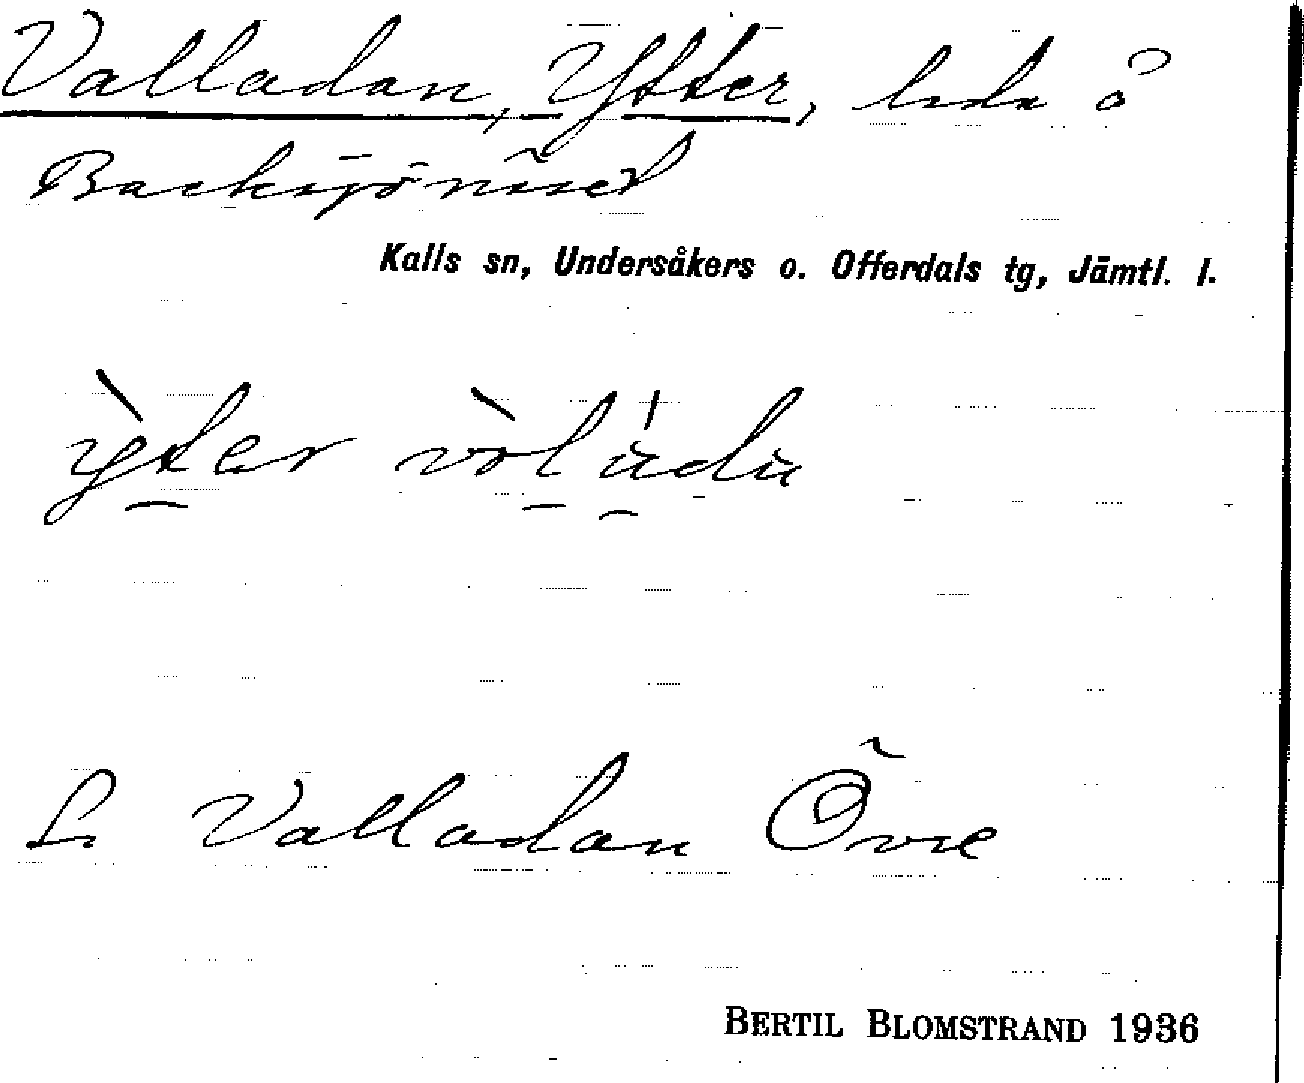 Valladan, Ytter, lada å
Backsjönäset
Kalls sn, Undersåkers o. Offerdals tg, Jämtl. l.
ỳter vòladu
Se Valladan Övre
BERTIL BLOMSTRAND 1936